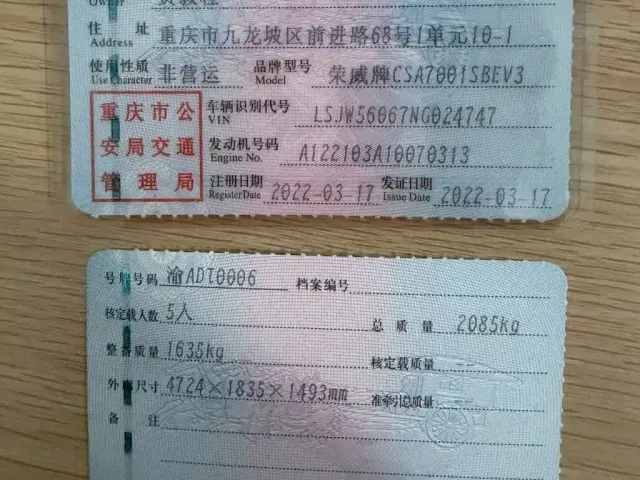 Owner
住 址 重庆市九龙坡区前进路68号1单元10-1
Address
使用性质 非营运 品牌型号 荣威牌CSA7001SBEV3
Use Character Model
重庆市公
安局交通
管理局
车辆识别代号 LSJW56067NG024747
VIN
发动机号码 A122103A10070313
Engine No.
注册日期 2022-03-17 发证日期 2022-03-17
Register Date Issue Date
号牌号码 渝ADT0006 档案编号
核定载人数 5人 总质量 2085kg
整备质量 1635kg 核定载质量
外廓尺寸 4724×1835×1493mm 准牵引总质量
备 注